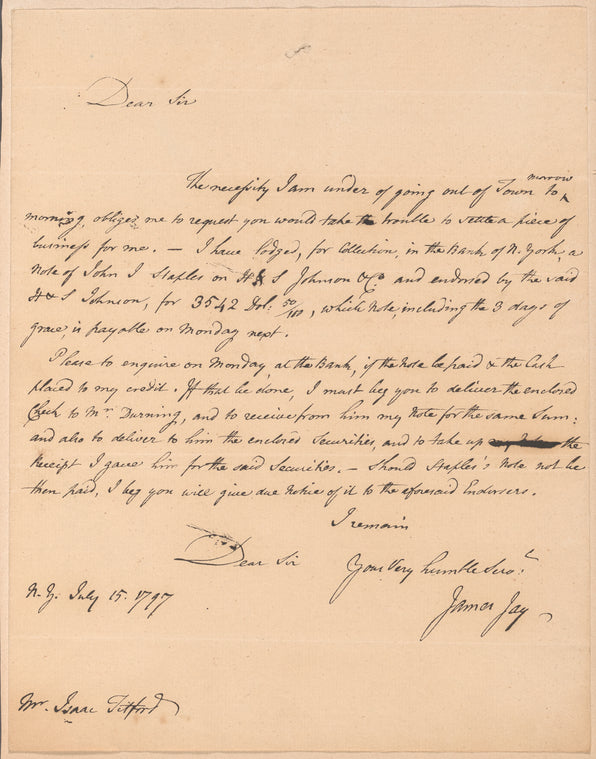 Dear Sir
The necessity I am under of going out of Town to^marrow
morning, obliges me to request you would take the trouble to settle a piece of
business for me. — I have lodged, for Collection, in the Bank of N. York a
Note of John I Staples on H & S Johnson & Co and endorsed by the said
H & S Johnson, for 3542 Dol: 50/100, which Note, including the 3 days of
grace, is payable on Monday next.
Please to enquire on Monday, at the Bank, if the Note be paid & the Cash
placed to my credit. If that be done, I must beg you to deliver the enclosed
Check to Mr. Durning, and to receive from him my Note for the same Sum:
and also to deliver to him the enclosed Securities, and to take up the
Receipt I gave him for the said Securities. — Should Staples's Note not be
then paid, I beg you will give due Notice of it to the aforesaid Endorsers.
I remain
Dear Sir Your Very humble Servt
N. Y. July 15. 1797
James Jay
Mr. Isaac Titford